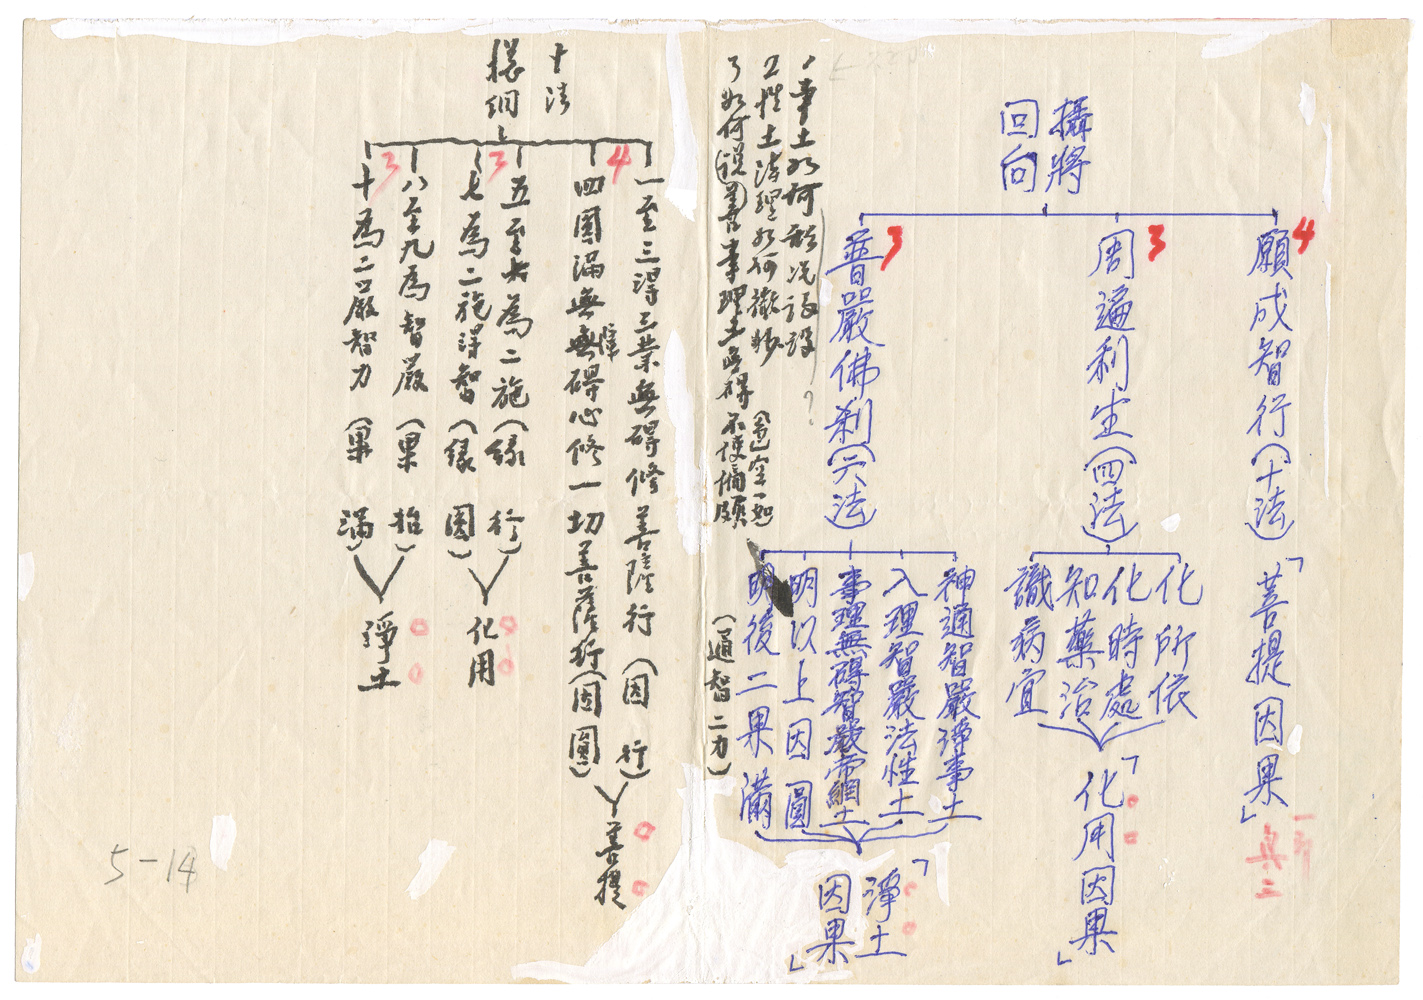 攝將
回向
4
願成智行(十法)
「菩提因果」
3
周遍利生(四法)
化所依
化時處
知藥治
識病宜
「化用因果」
3
普嚴佛剎(六法)
神通智嚴淨事土
入理智嚴法性土
事理無碍智嚴帝網土
明以上因圓
明後二果滿
「淨土
因果」
1事土如何
2性土法理如何
3如何說善事理土無碍不使偏頗
(色空一如)
(通智二力)
十法
4
一至三得三業無碍修善薩行(因行)
四圓滿無無碍心修一切菩薩行(因圓)
障
菩提
3
為二施(緣行)
七為二施得智(緣圓)
化用
3
八至九為智嚴(果
十為二嚴智力(果滿)
淨土
5-14